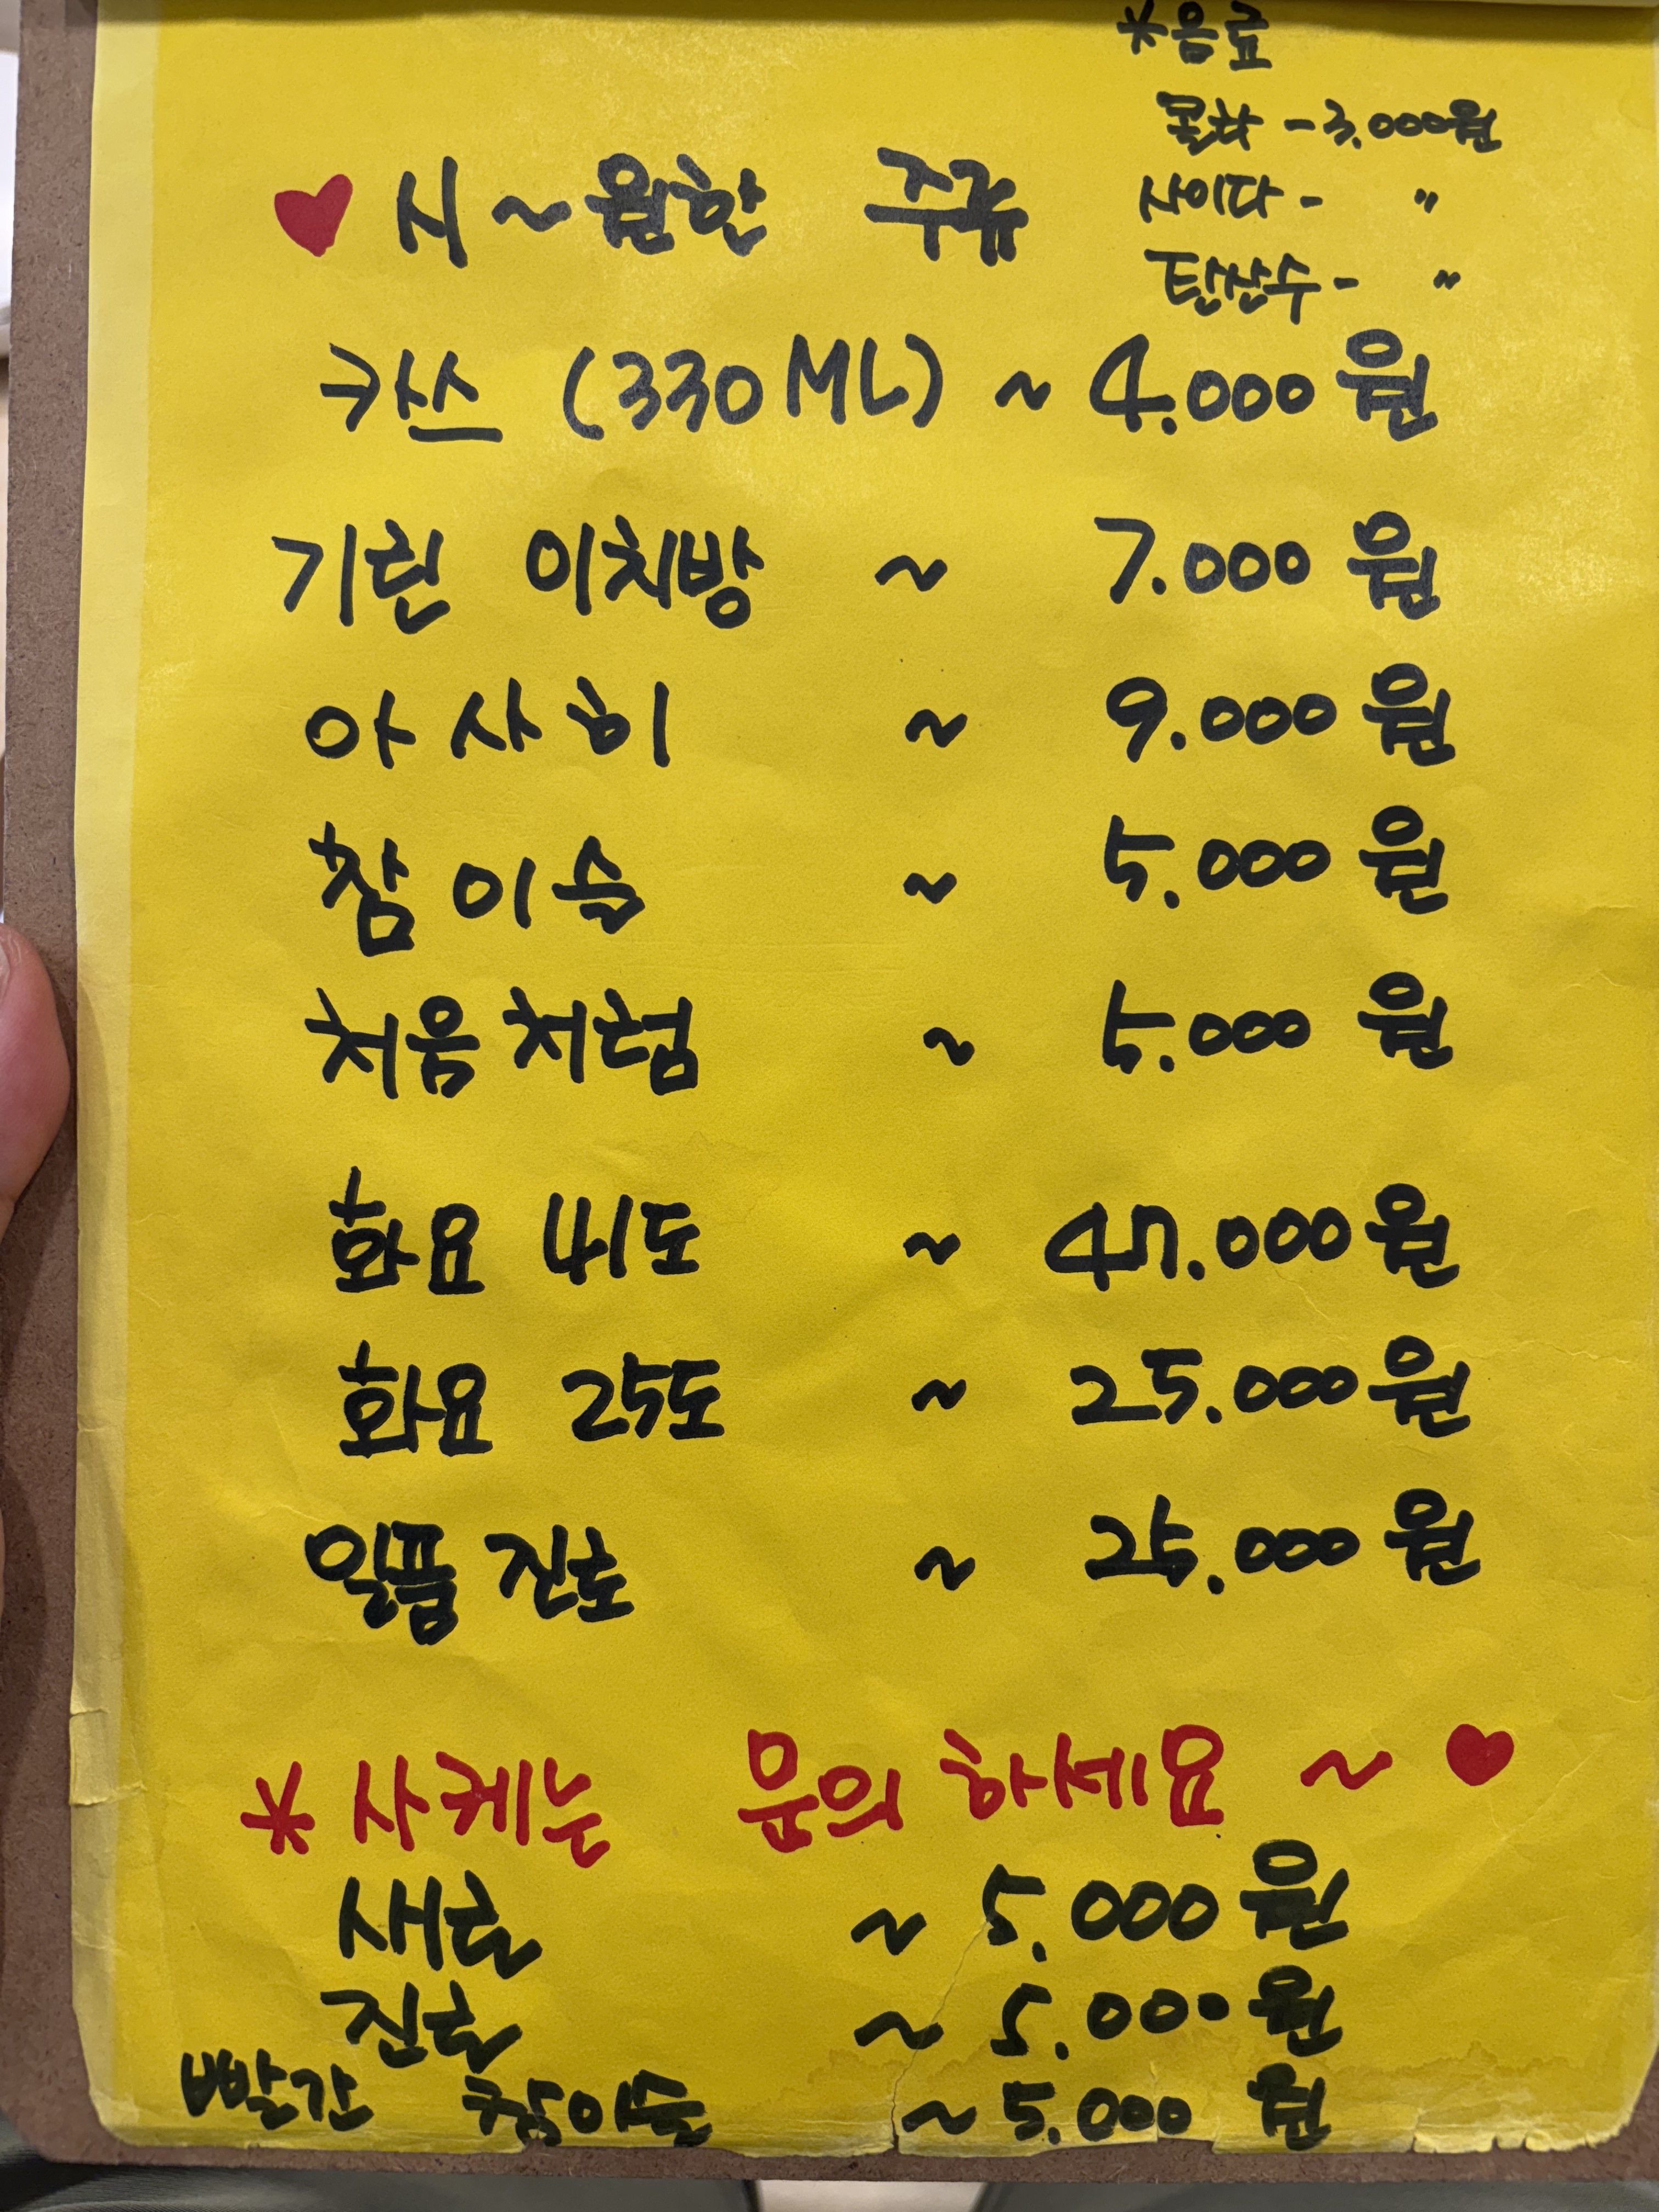 *음료
콜라 - 3.000원
사이다 - 〃
탄산수 - 〃
♥ 시~원한 주류
카쓰 (330ML) ~ 4.000원
기린 이치방 ~ 7.000원
아사히 ~ 9.000원
참이슬 ~ 5.000원
처음처럼 ~ 5.000원
화요 41도 ~ 47.000원
화요 25도 ~ 25.000원
일품 진로 ~ 25.000원
*사케는 문의 하세요 ~ ♥
새로 ~ 5.000원
진로 ~ 5.000원
빨간 참이슬 ~ 5.000원